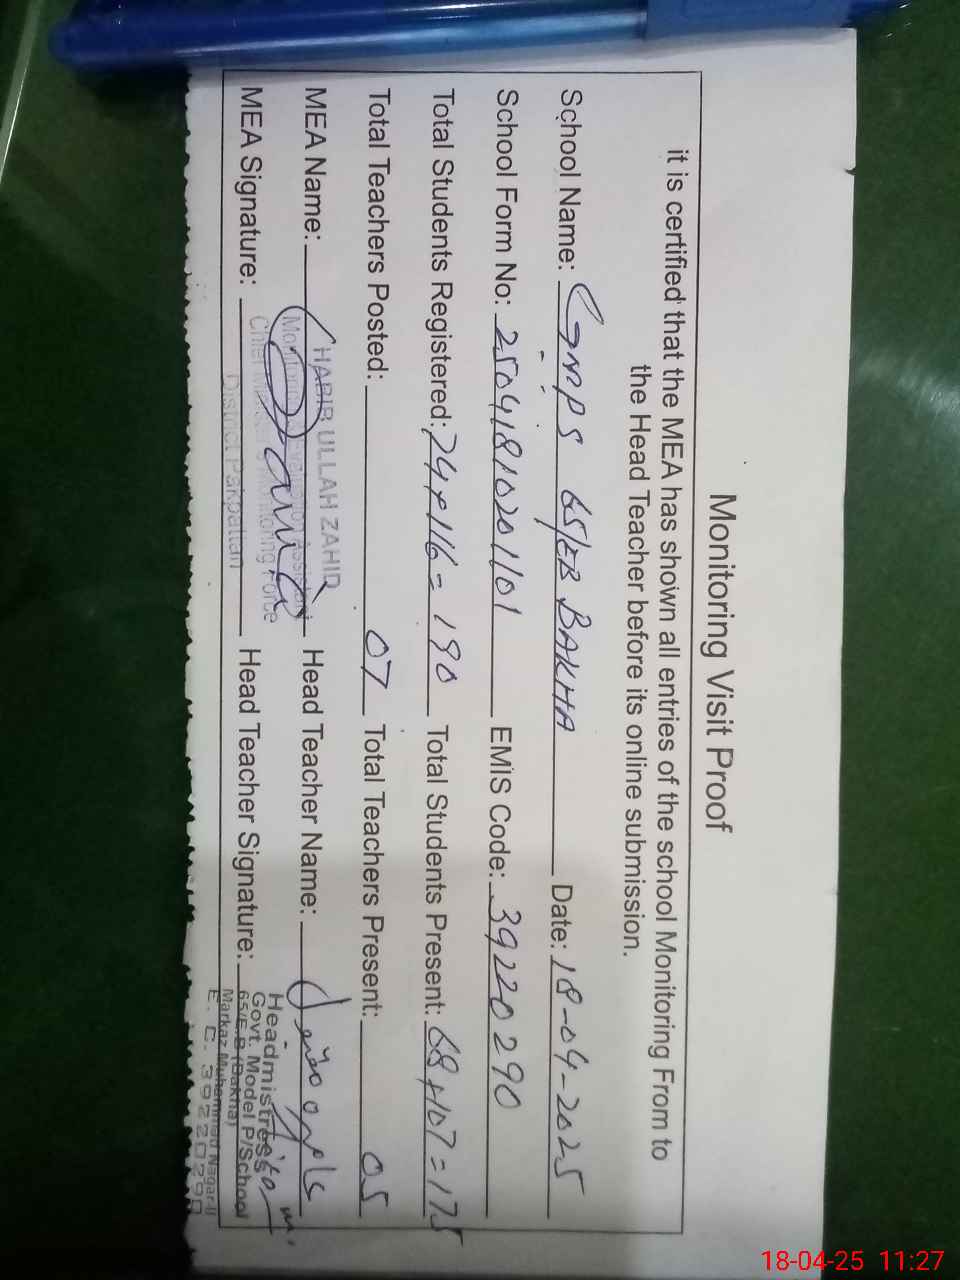 Monitoring Visit Proof
it is certified that the MEA has shown all entries of the school Monitoring From to
the Head Teacher before its online submission.
School Name: GMPS 65/EB BAKHA Date: 18-04-2025
School Form No: 25041810201101 EMIS Code: 39220290
Total Students Registered: 74+116=190 Total Students Present: 68+107=175
Total Teachers Posted: 07 Total Teachers Present: 05
MEA Name: HABIB ULLAH ZAHID Head Teacher Name:
Monitoring & Evaluation Assistant
Chief Minister's Monitoring Force
District Pakpattan
MEA Signature: Head Teacher Signature:
Headmistress
Govt. Model P/School
65/E.B (Bakha)
Markaz Muhammad Nagar-II
E. C. 39220290
18-04-25 11:27